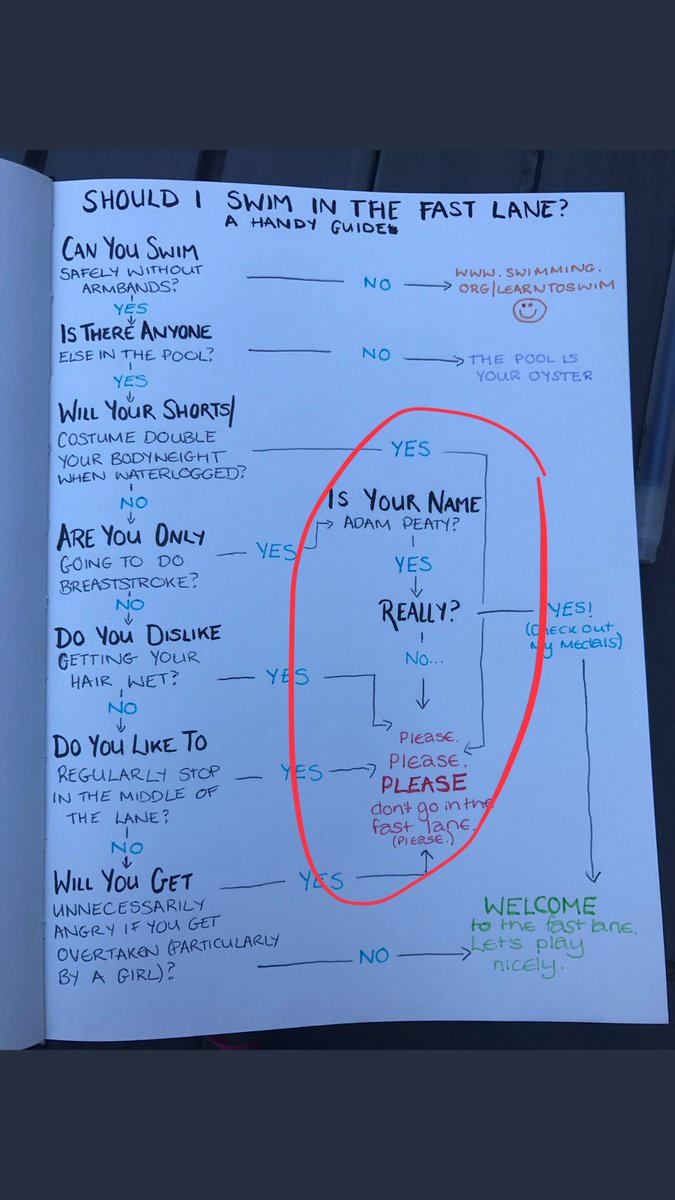 SHOULD I SWIM IN THE FAST LANE?
A HANDY GUIDE
CAN YOU SWIM
SAFELY WITHOUT
ARMBANDS?
NO
WWW.SWIMMING.
ORG/LEARNTOSWIM
YES
IS THERE ANYONE
ELSE IN THE POOL?
NO
THE POOL IS
YOUR OYSTER
YES
WILL YOUR SHORTS/
COSTUME DOUBLE
YOUR BODYWEIGHT
WHEN WATERLOGGED?
YES
NO
ARE YOU ONLY
GOING TO DO
BREASTSTROKE?
YES
IS YOUR NAME
ADAM PEATY?
YES
REALLY?
YES!
(Check out
My Medals)
No...
NO
DO YOU DISLIKE
GETTING YOUR
HAIR WET?
YES
NO
DO YOU LIKE TO
REGULARLY STOP
IN THE MIDDLE OF
THE LANE?
YES
Please.
Please.
PLEASE
dont go in the
fast lane.
(Please.)
NO
WILL YOU GET
UNNECESSARILY
ANGRY IF YOU GET
OVERTAKEN (PARTICULARLY
BY A GIRL)?
YES
NO
WELCOME
to the fast lane.
Let's play
nicely.